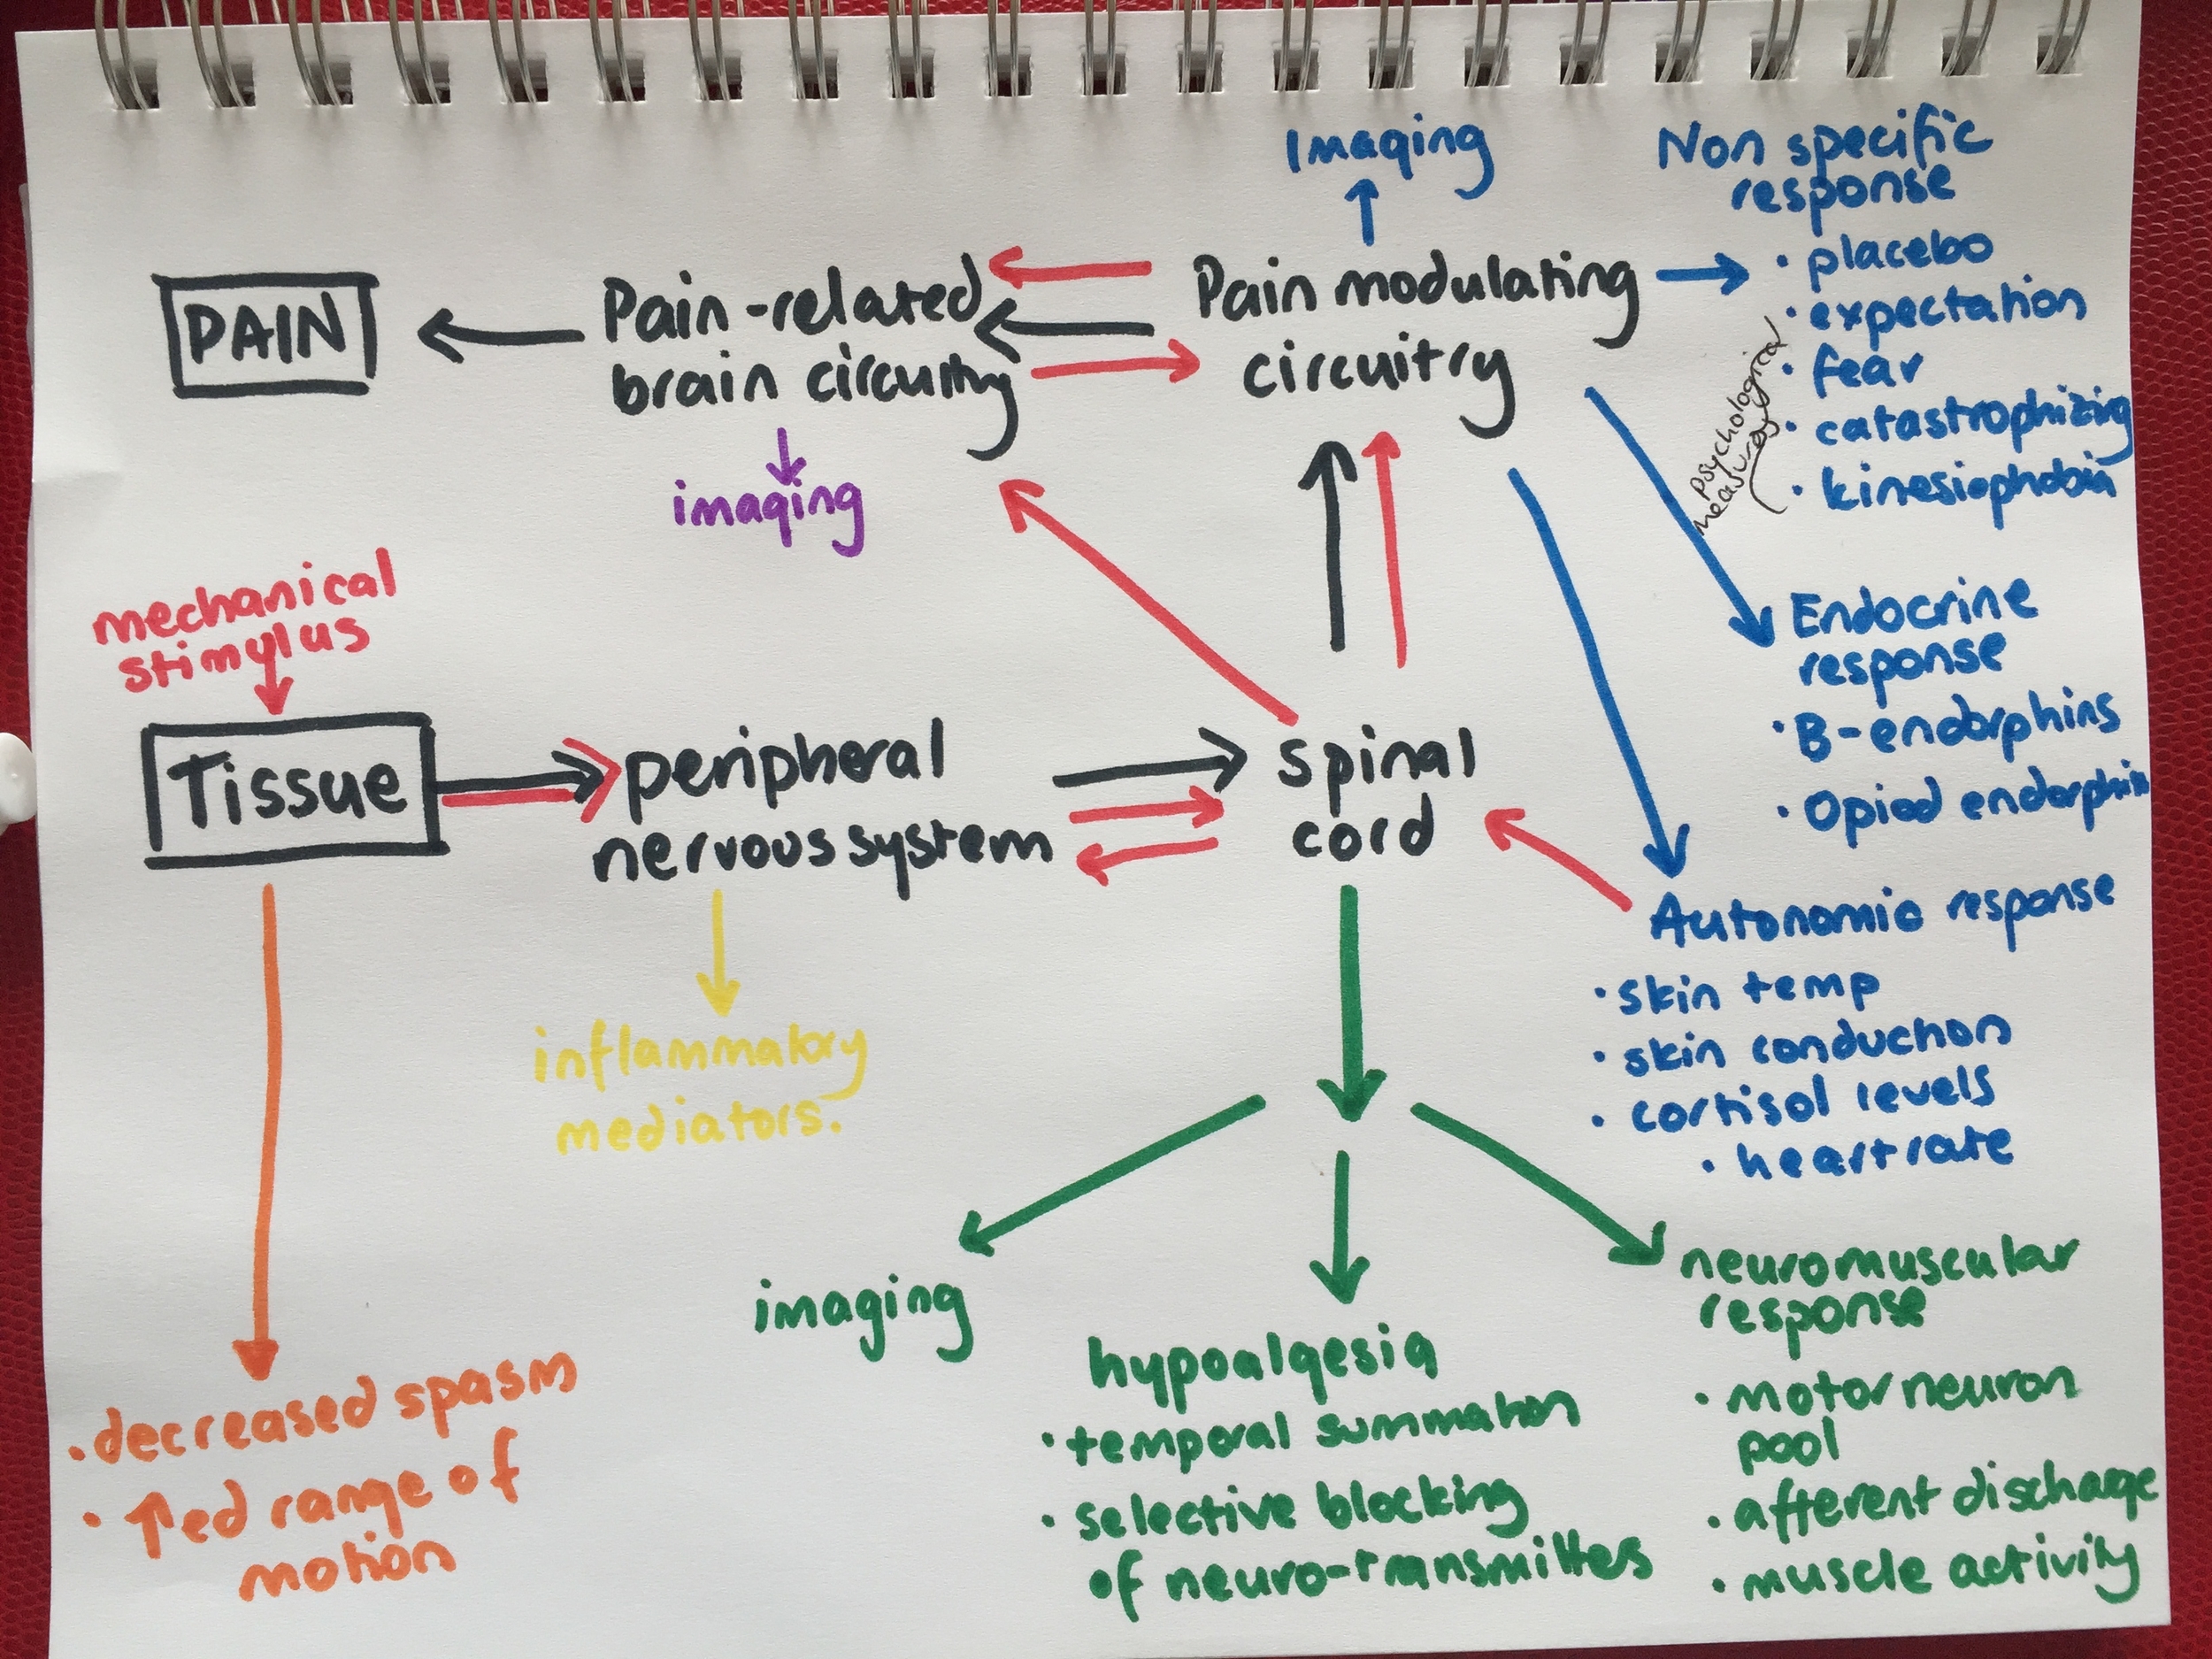 Imaging
Non specific
response
• placebo
• expectation
• fear
• catastrophizing
• kinesiophobia
psychological
measures
PAIN
Pain-related
brain circuitry
imaging
Pain modulating
circuitry
mechanical
stimylus
Tissue
peripheral
nervous system
spinal
cord
Endocrine
response
• B-endorphins
• Opiod endorphin
inflammatory
mediators.
Autonomic response
• skin temp
• skin conduction
• cortisol levels
• heart rate
imaging
neuromuscular
response
• motor neuron
pool
• afferent discharge
• muscle activity
hypoalgesia
• temporal summation
• selective blocking
of neuro-transmittes
• decreased spasm
• ↑ed range of
motion